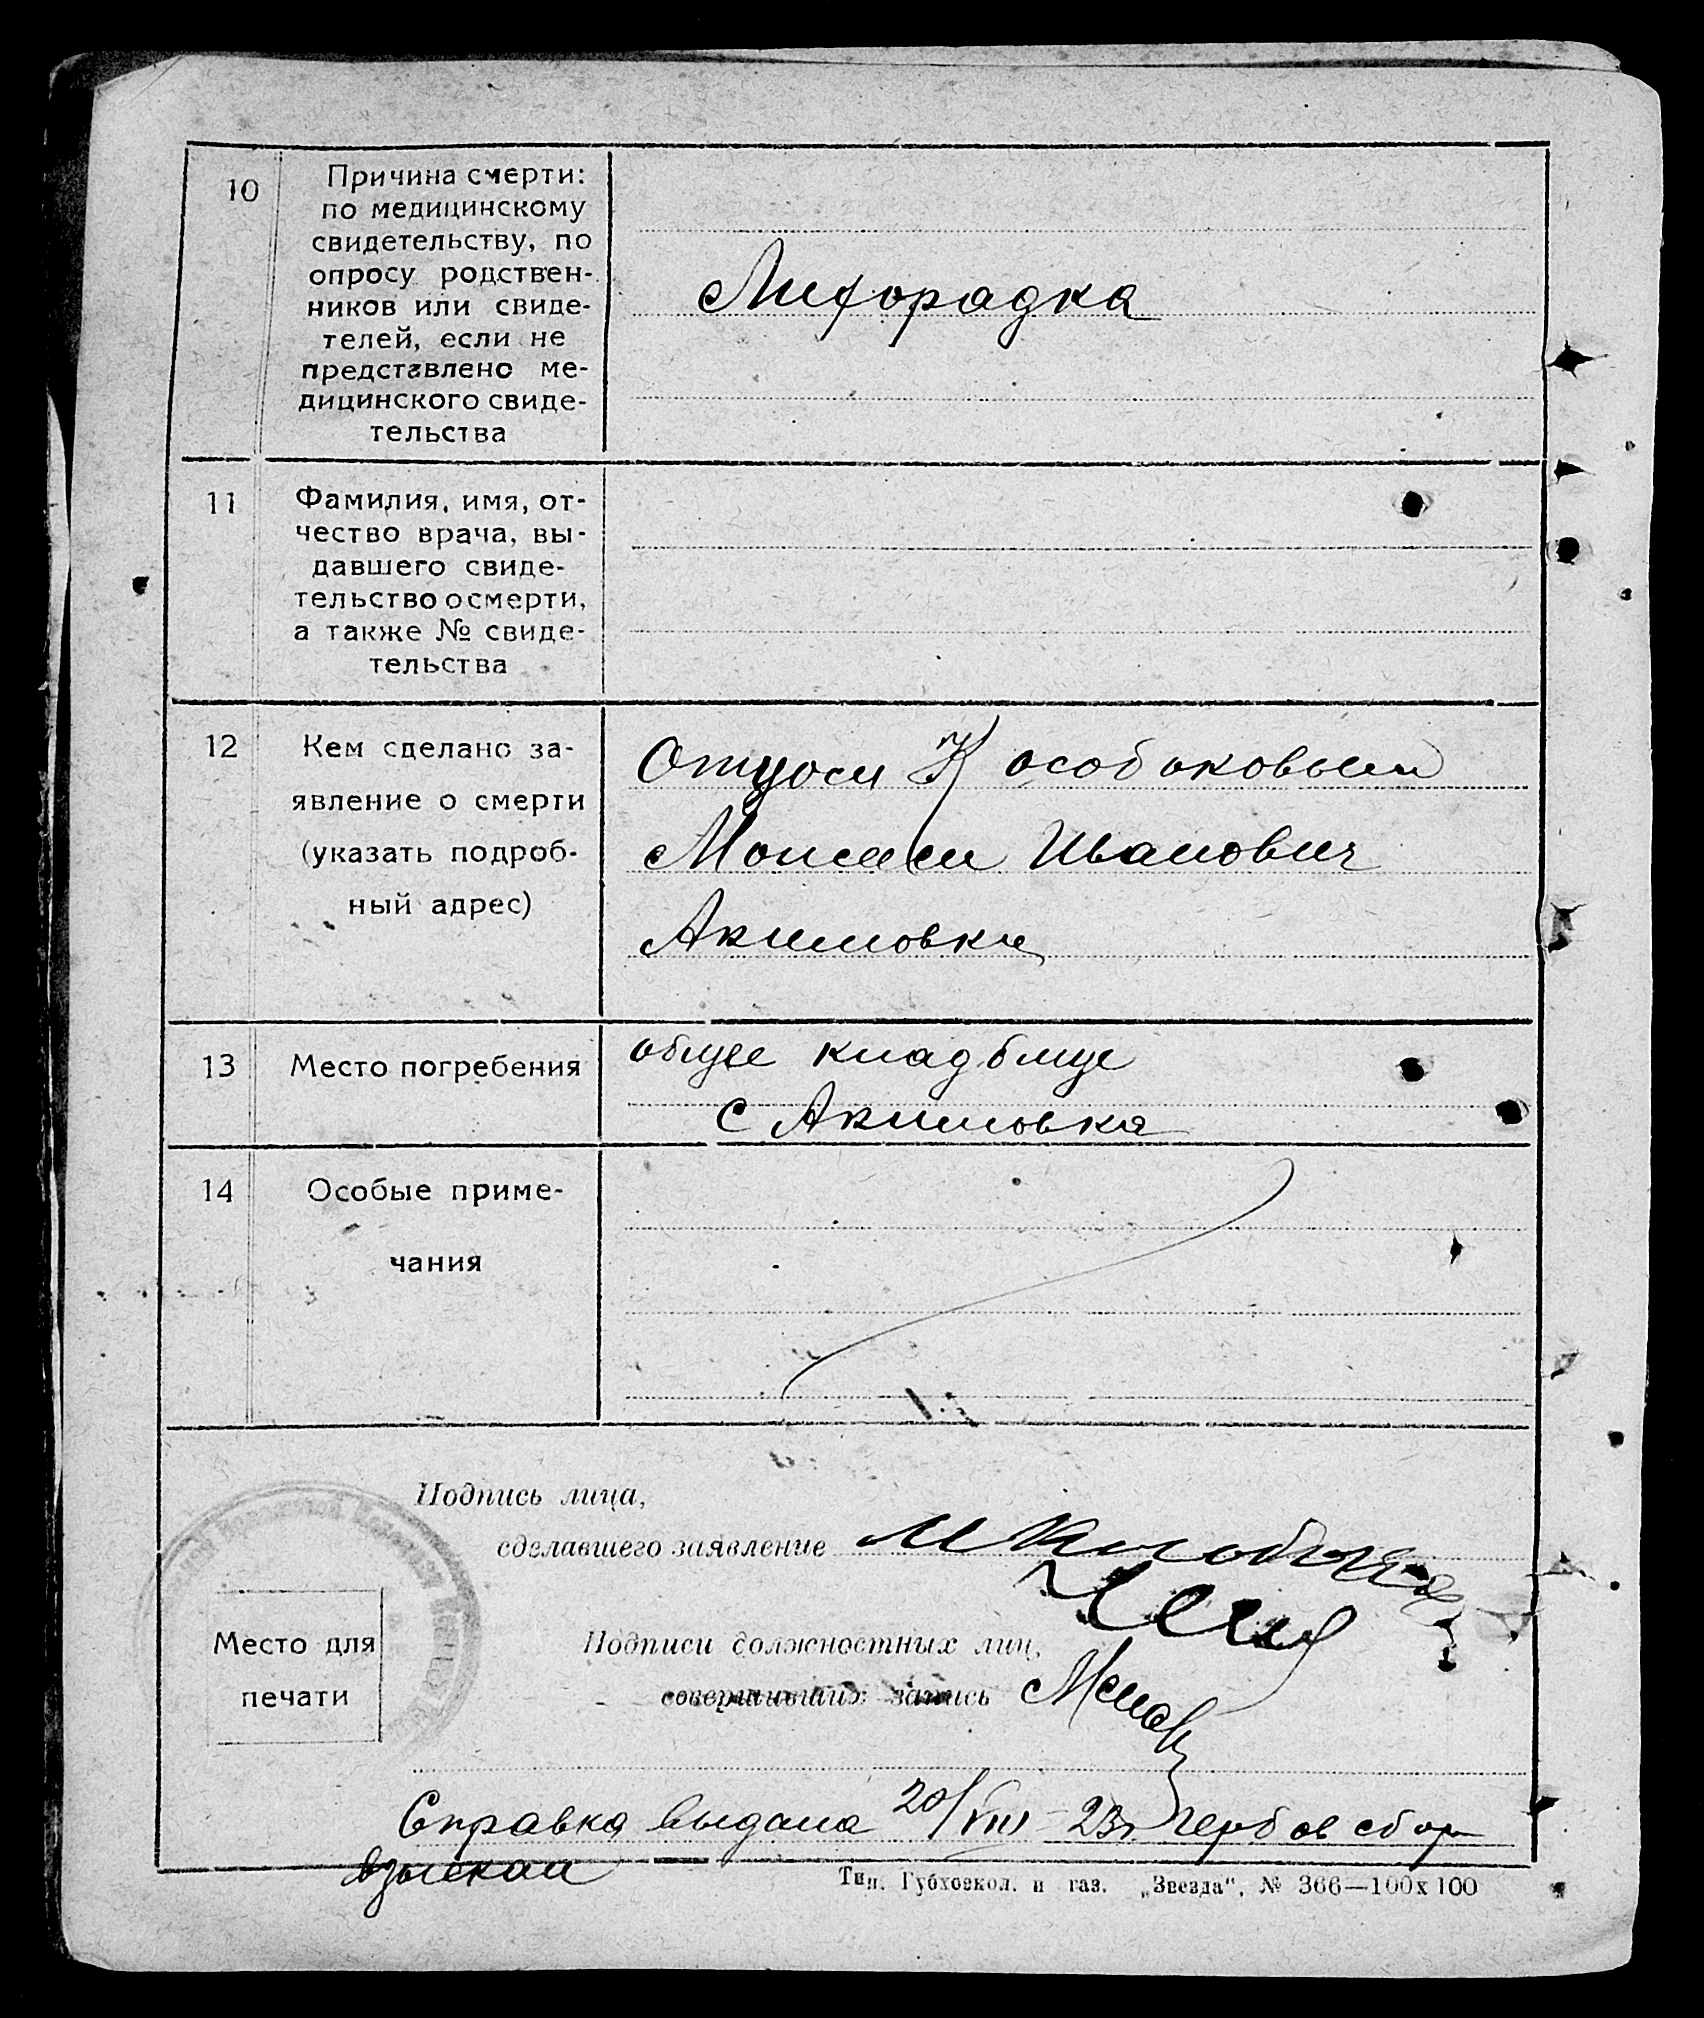 10
Причина смерти:
по медицинскому
свидетельству, по
опросу родствен-
ников или свиде-
телей, если не
представлено ме-
дицинского свиде-
тельства
Лихорадка
11
Фамилия, имя, от-
чество врача, вы-
давшего свиде-
тельство о смерти,
а также № свиде-
тельства
12
Кем сделано за-
явление о смерти
(указать подроб-
ный адрес)
Отцом Кособоковым
Моисеем Иванович
Акимовка
13
Место погребения
общее кладбище
с Акимовка
14
Особые приме-
чания
Подпись лица,
сделавшего заявление
Место для
печати
Подписи должностных лиц,
совершивших запись
Справка выдана 20/VIII - 23г гербов сбор
взыскан
Тип. Губхозкол. и газ. „Звезда“, № 366—100х100